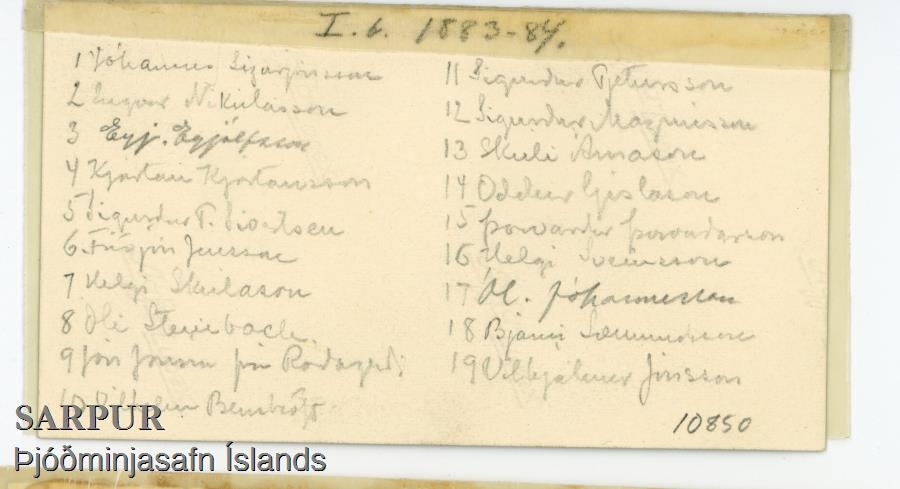 I. b. 1883-84.
1 Jóhannes Sigurjónsson
2 Nikulásson
3 Eyj. Eyjólfsson
4 Kjartan Kjartansson
5 Sigurður P. Sivertsen
6 Jensson
7 Helgi Skúlason
8 Óli Steinbach
9 Jón Jónsson frá
10 Vilhelm Bernhöft
11 Sigurður Pjetursson
12 Sigurður Magnússon
13 Skúli Árnason
14 Oddur Gíslason
15 Þorvarður Þorvarðarson
16 Helgi Sveinsson
17 Ól. Jóhannesson
18 Bjarni Sæmundsson
19 Vilhjálmur Jónsson
10850
SARPUR
Þjóðminjasafn Íslands